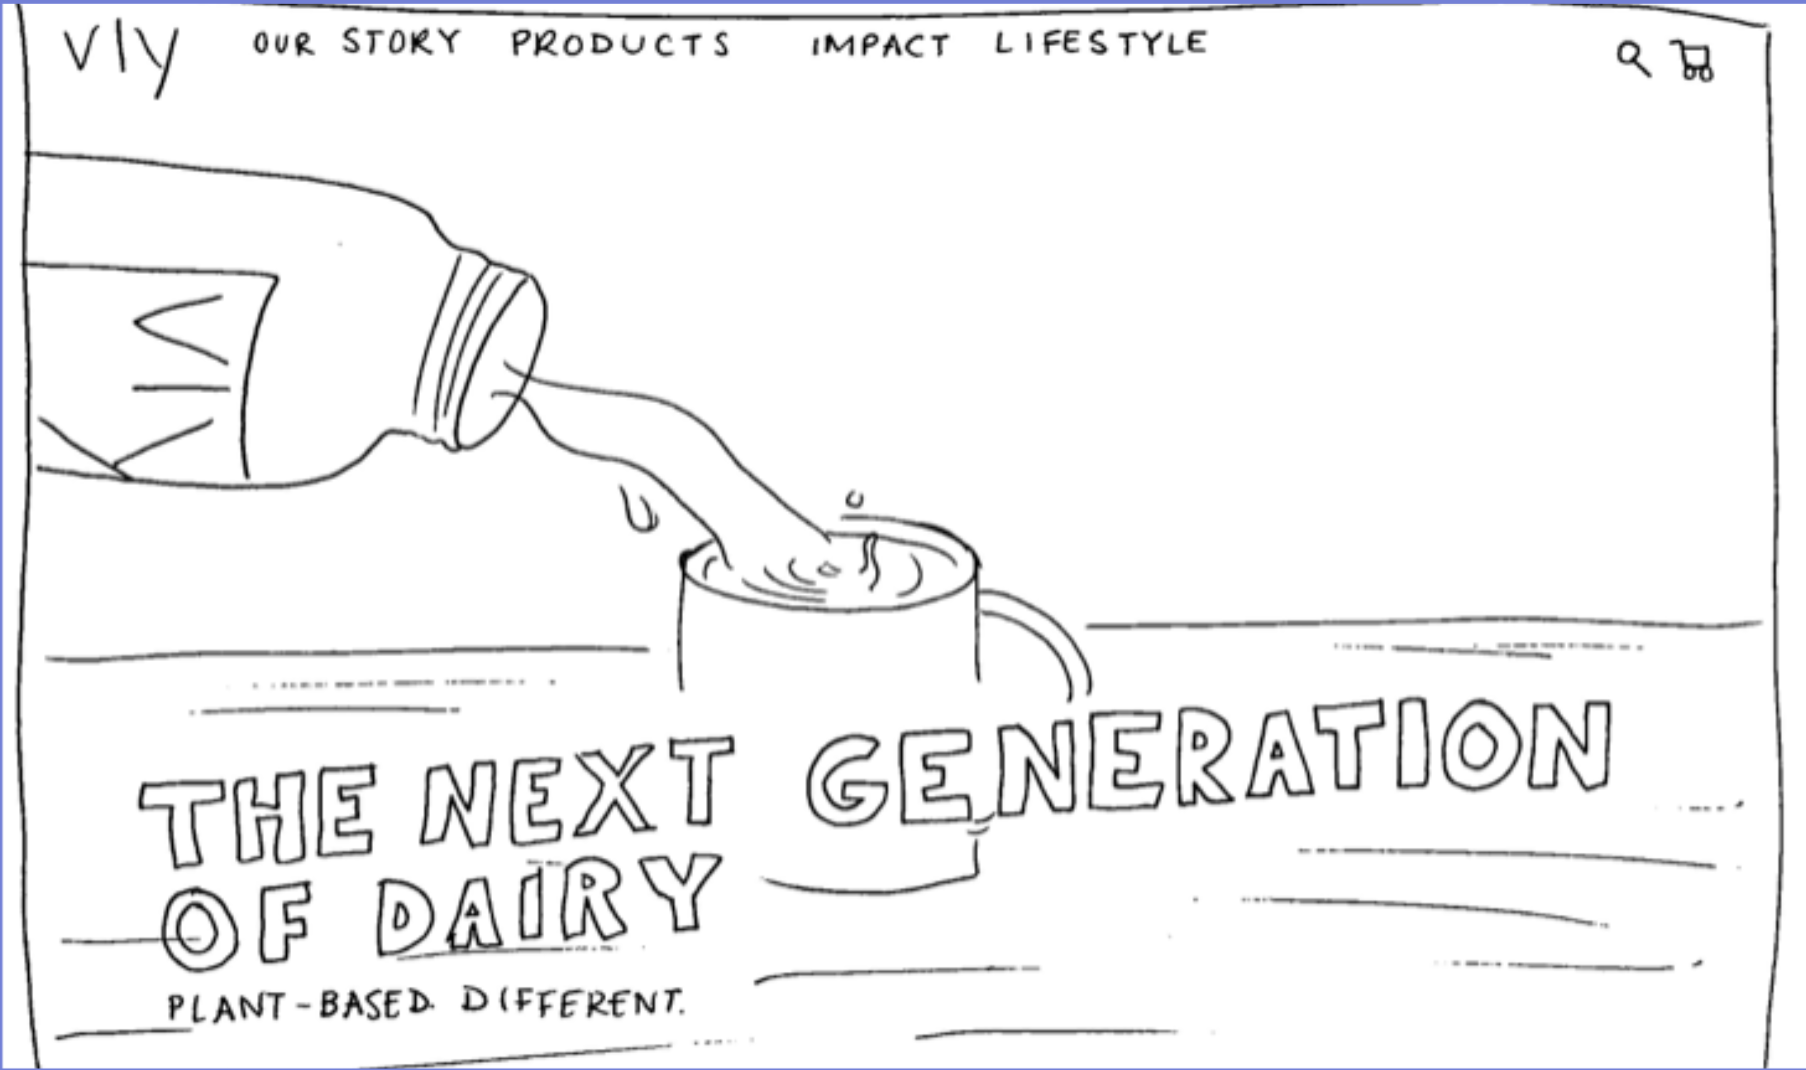 vly OUR STORY PRODUCTS IMPACT LIFESTYLE
THE NEXT GENERATION
OF DAIRY
PLANT-BASED. DIFFERENT.